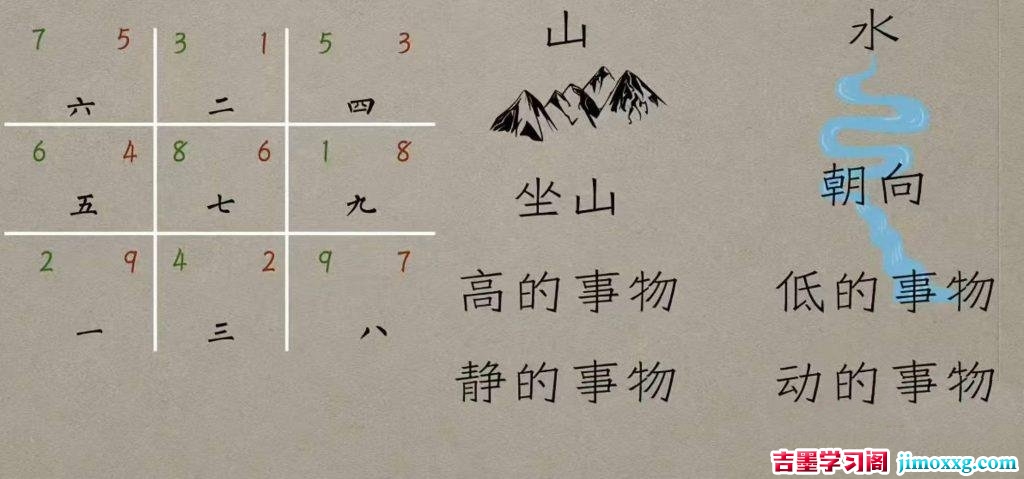 7 5 3 1 5 3
六 二 四
6 4 8 6 1 8
五 七 九
2 9 4 2 9 7
一 三 八
山
坐山
高的事物
静的事物
水
朝向
低的事物
动的事物
吉墨学习阁 jimoxxg.com